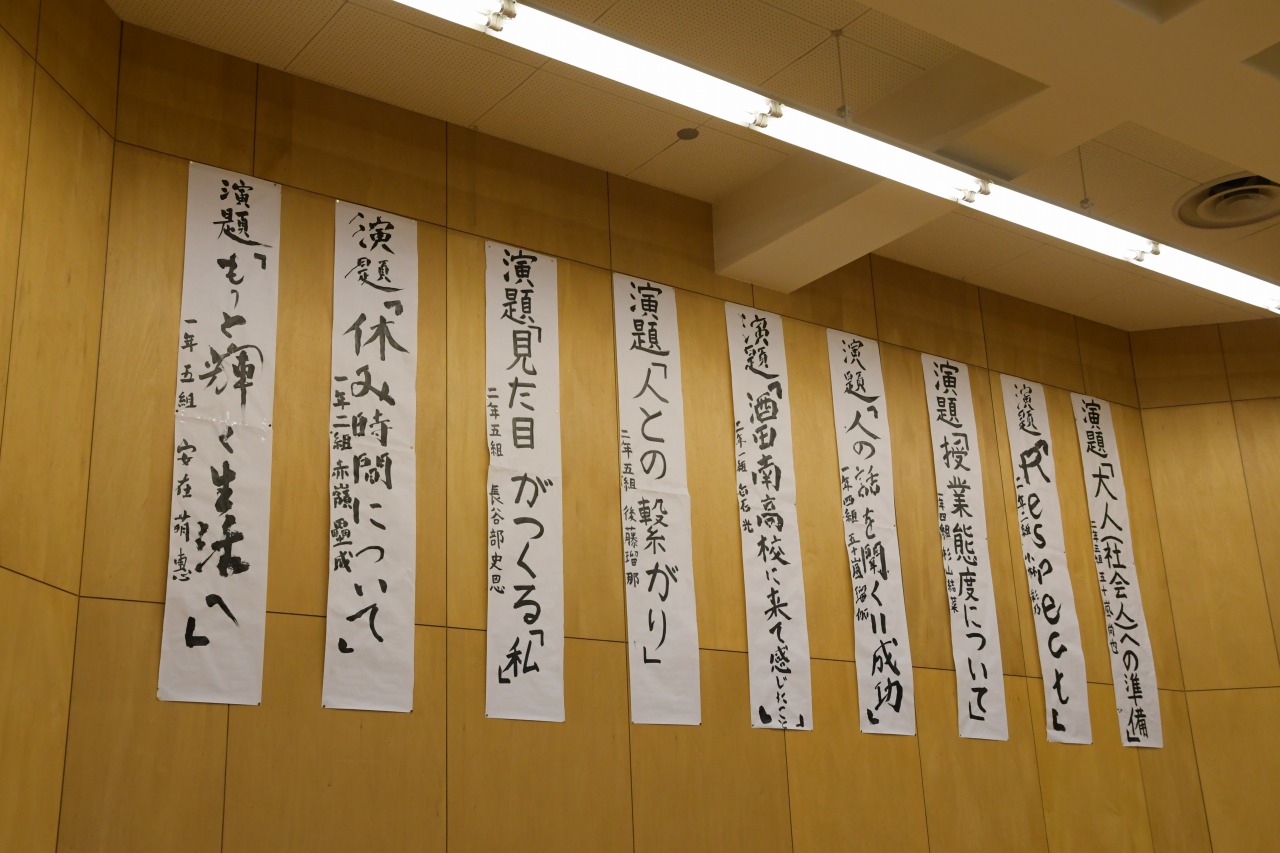 演題「大人(社会人)への準備」
五十嵐
演題「Respect」
二年二組 小林
演題「授業態度について」
一年四組 杉山結菜
演題「人の話を聞く=成功」
一年四組 五十嵐
演題「酒田南高校に来て感じたこと」
二年一組 白石
演題「人との繋がり」
二年五組 後藤瑠那
演題「見た目がつくる「私」」
二年五組 長谷部史恩
演題「休み時間について」
一年二組 赤嶺壘成
演題「もっと輝く生活へ」
一年五組 安在萌恵